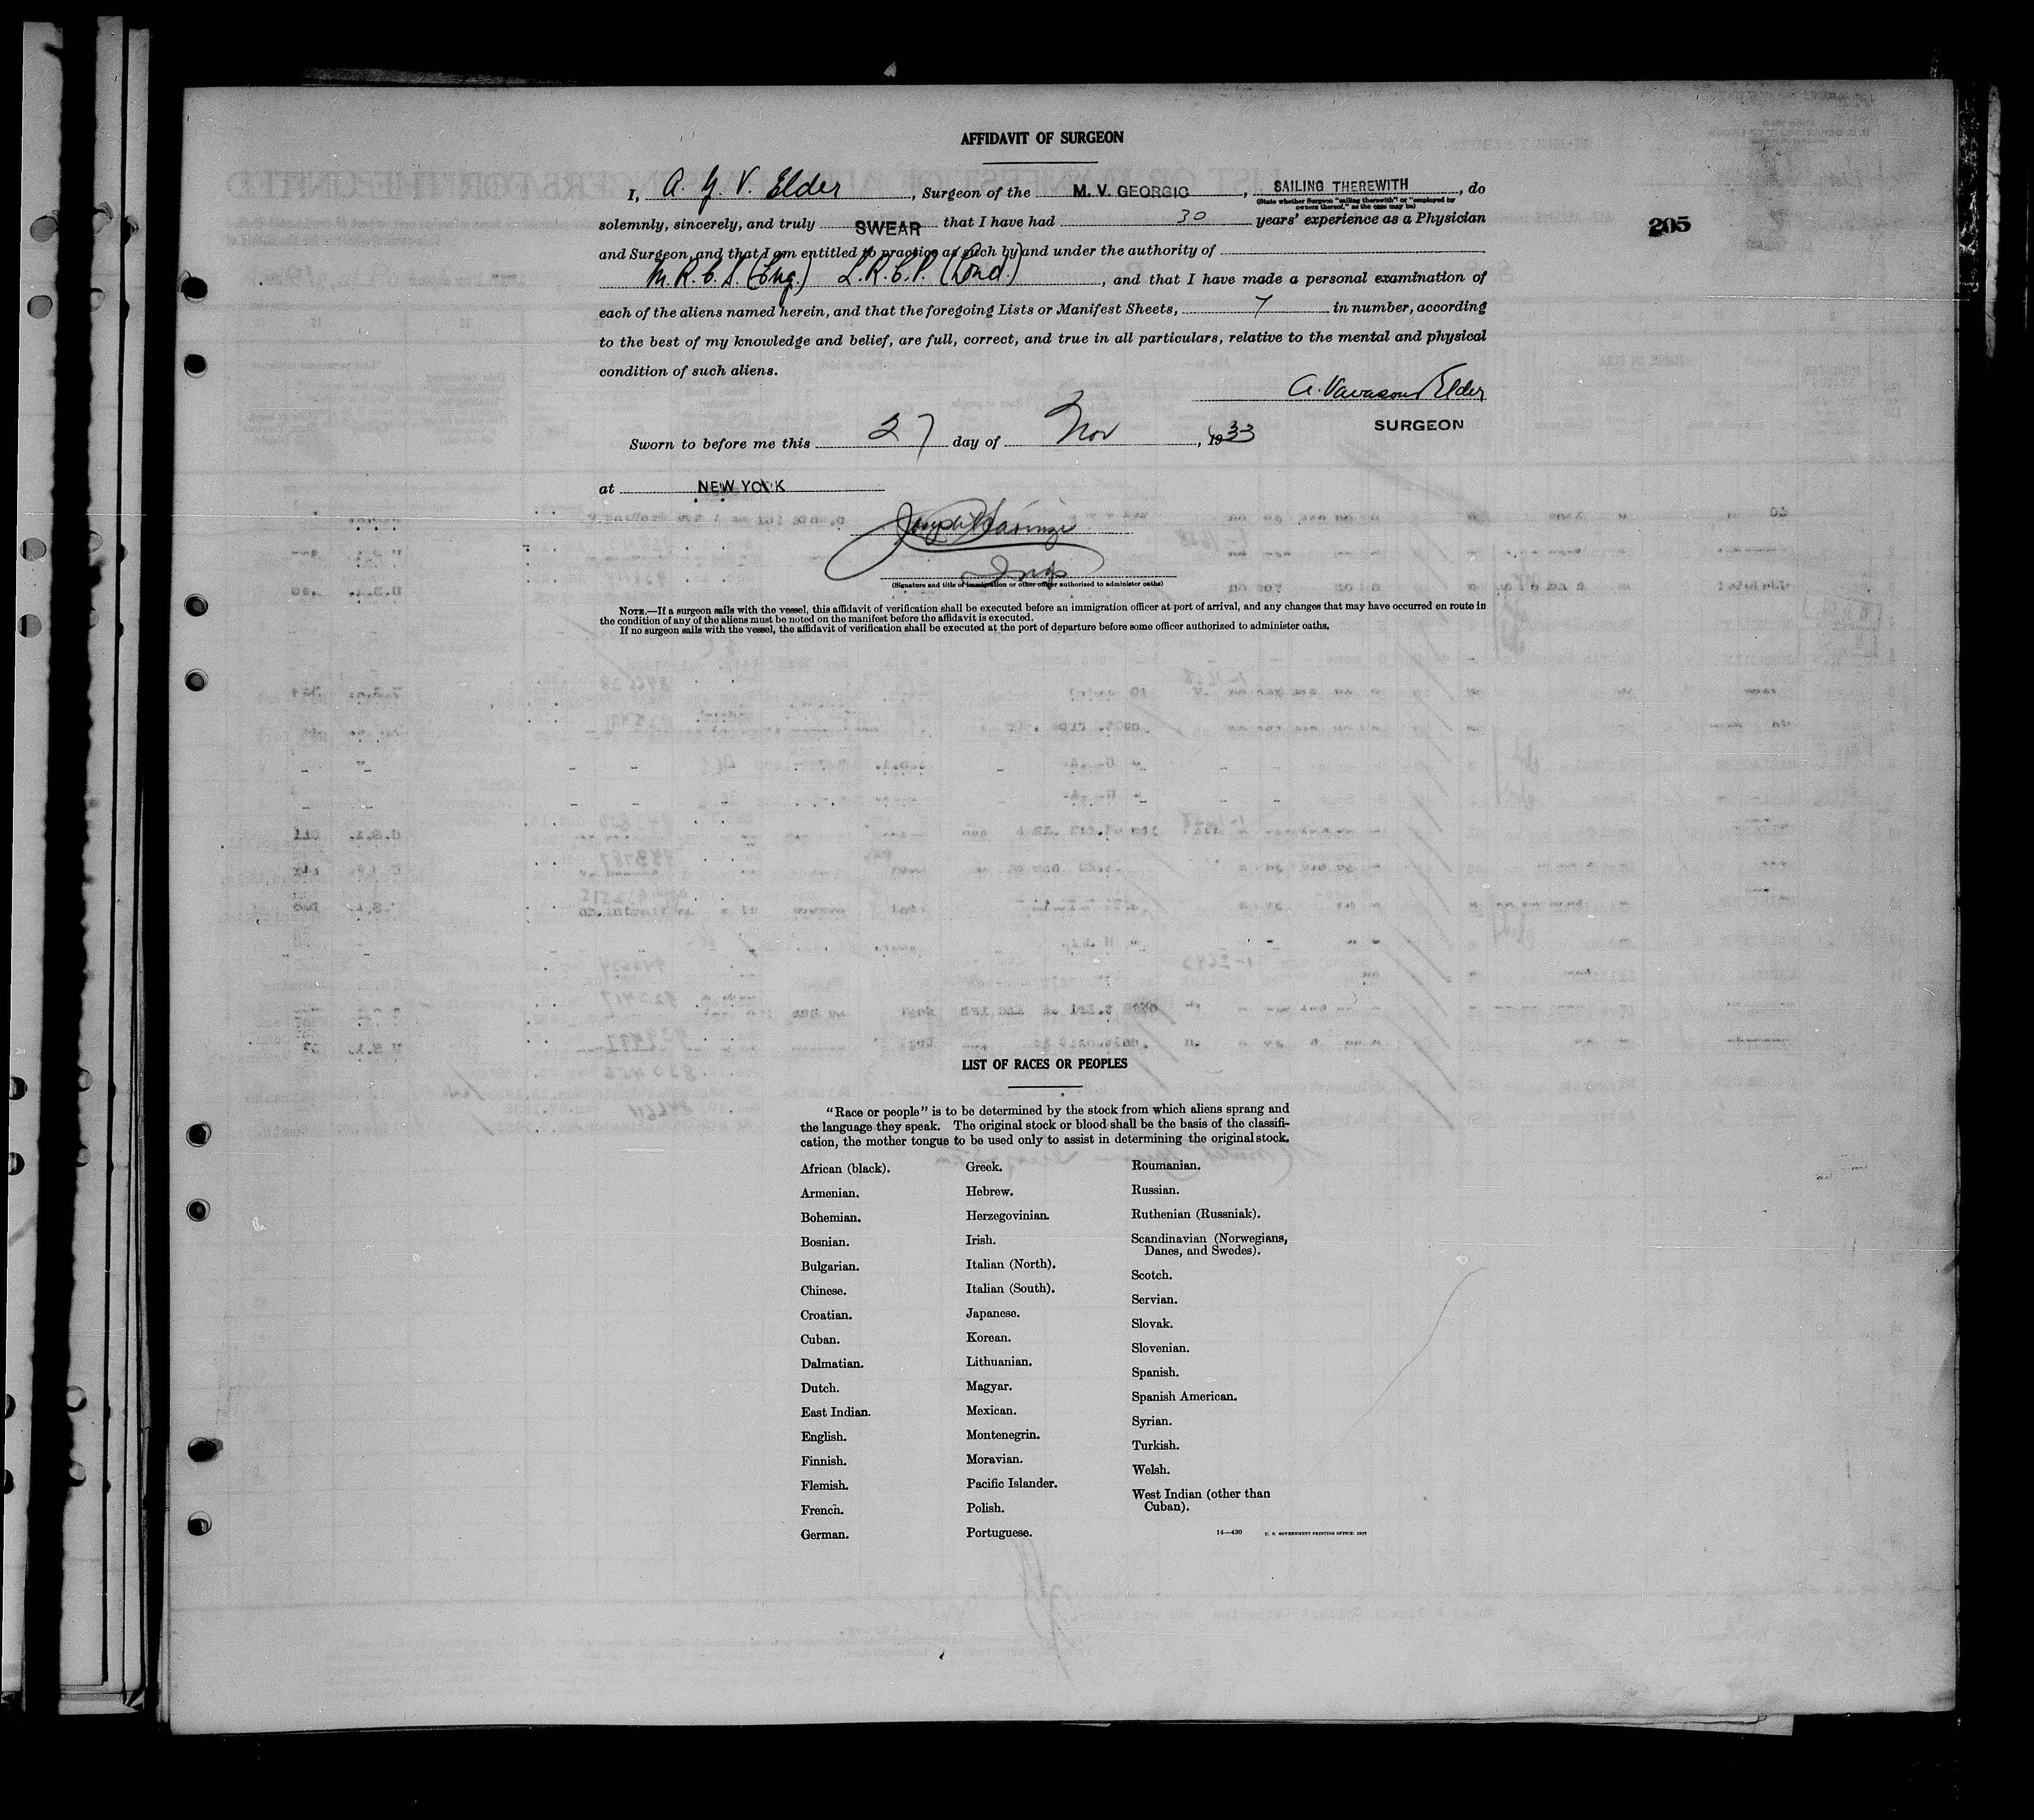 AFFIDAVIT OF SURGEON
I, A. G. V. Elder, Surgeon of the M. V. GEORGIC, SAILING THEREWITH, do
(State whether Surgeon "sailing therewith" or "employed by
owners thereof," as the case may be)
205
solemnly, sincerely, and truly SWEAR that I have had 30 years' experience as a Physician
and Surgeon and that I am entitled to practice as such by and under the authority of
M.R.C.S. (Eng.) L.R.C.P. (Lond.), and that I have made a personal examination of
each of the aliens named herein, and that the foregoing Lists or Manifest Sheets, 7 in number, according
to the best of my knowledge and belief, are full, correct, and true in all particulars, relative to the mental and physical
condition of such aliens.
A. Vavasour Elder
SURGEON
Sworn to before me this 27 day of Nov, 1933
at NEW YORK
Joseph
Insp
(Signature and title of immigration or other officer authorized to administer oaths)
NOTE.—If a surgeon sails with the vessel, this affidavit of verification shall be executed before an immigration officer at port of arrival, and any changes that may have occurred en route in
the condition of any of the aliens must be noted on the manifest before the affidavit is executed.
If no surgeon sails with the vessel, the affidavit of verification shall be executed at the port of departure before some officer authorized to administer oaths.
LIST OF RACES OR PEOPLES
"Race or people" is to be determined by the stock from which aliens sprang and
the language they speak. The original stock or blood shall be the basis of the classifi-
cation, the mother tongue to be used only to assist in determining the original stock.
African (black).
Armenian.
Bohemian.
Bosnian.
Bulgarian.
Chinese.
Croatian.
Cuban.
Dalmatian.
Dutch.
East Indian.
English.
Finnish.
Flemish.
French.
German.
Greek.
Hebrew.
Herzegovinian.
Irish.
Italian (North).
Italian (South).
Japanese.
Korean.
Lithuanian.
Magyar.
Mexican.
Montenegrin.
Moravian.
Pacific Islander.
Polish.
Portuguese.
Roumanian.
Russian.
Ruthenian (Russniak).
Scandinavian (Norwegians,
Danes, and Swedes).
Scotch.
Servian.
Slovak.
Slovenian.
Spanish.
Spanish American.
Syrian.
Turkish.
Welsh.
West Indian (other than
Cuban).
14—430 U. S. GOVERNMENT PRINTING OFFICE: